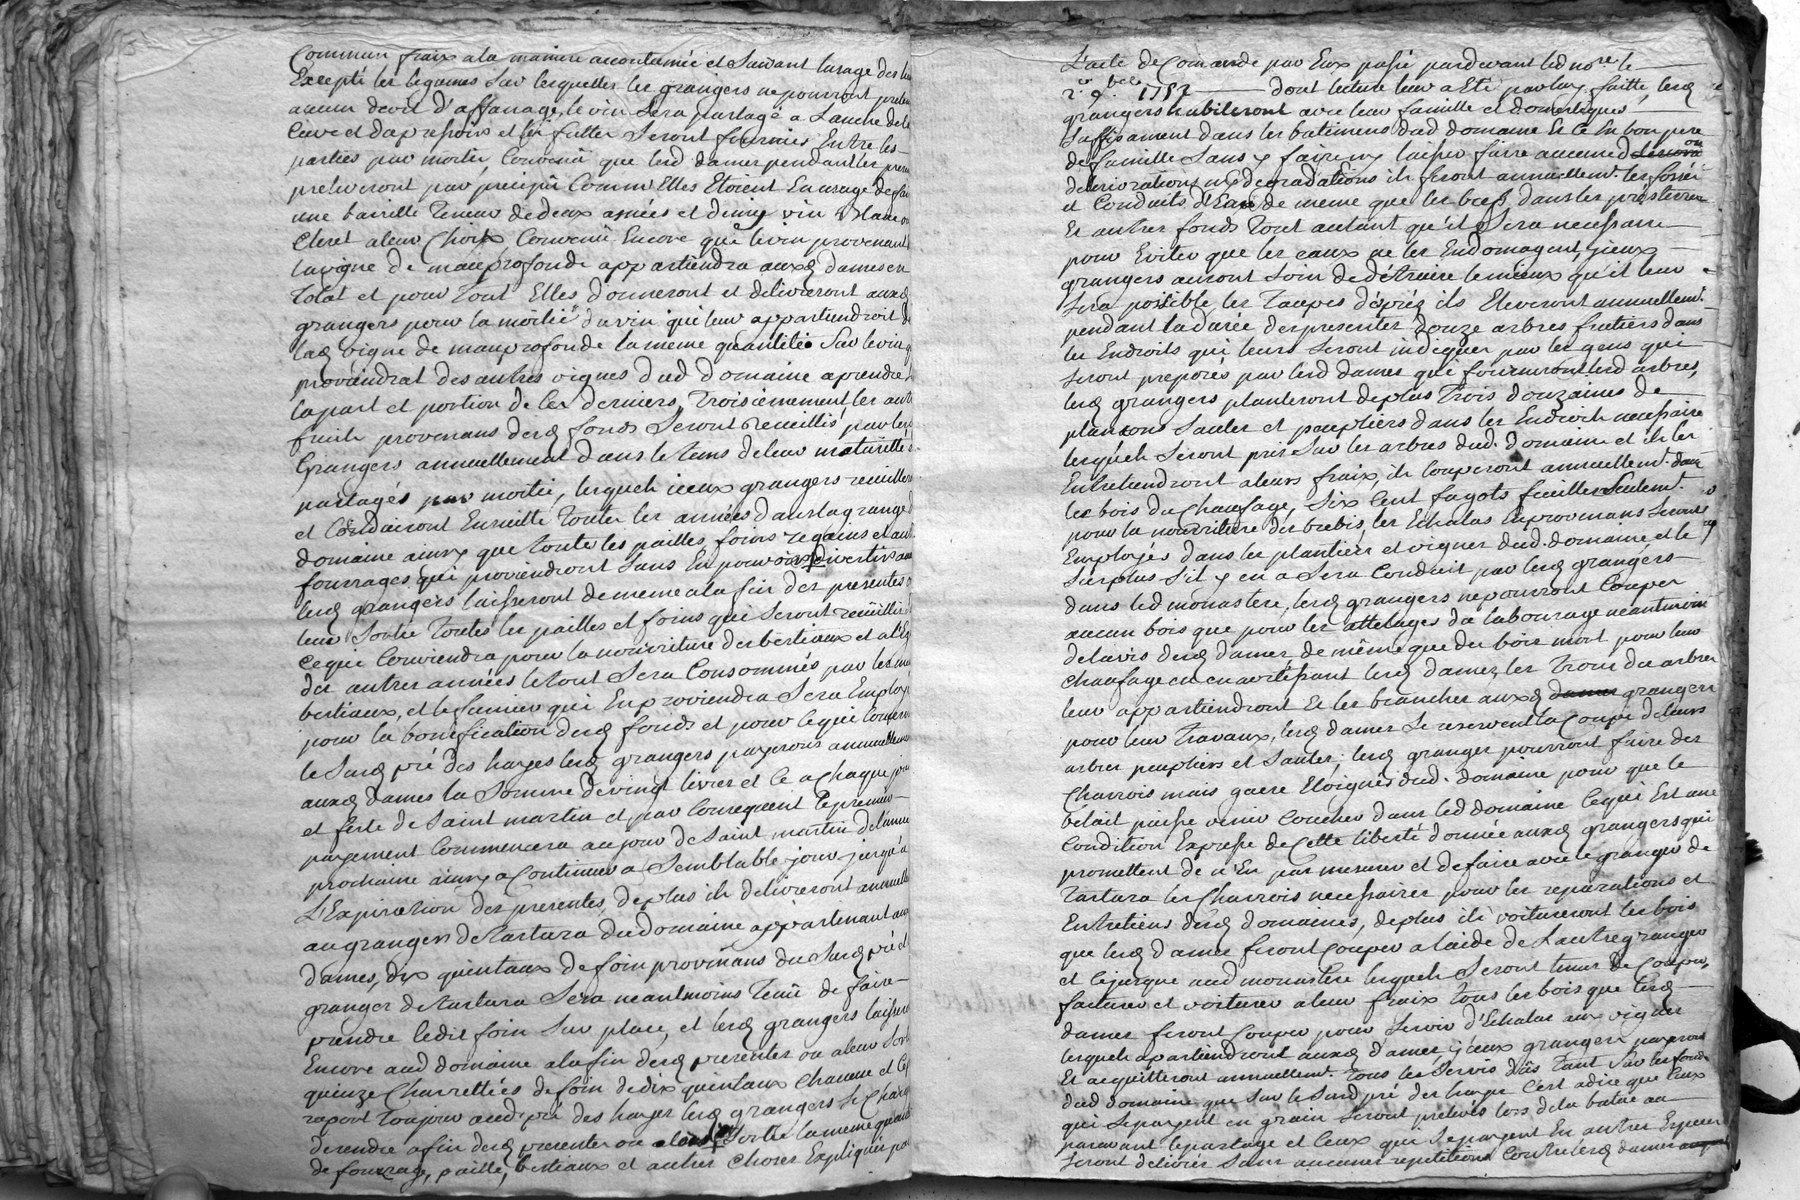 Commun fraix a la maniere accoutumée et Suivant lusage des
Excepté les legumes Sur lesquelles les grangers ne pourront
aucun droit d'affanage, le vin Sera partagé a Lanche de la
Cuve et dapressoirs et les futtes Seront fournies Entre les
parties par moitié, Convenû que lesd dames pendant les
preleveront par précipû Comme Elles Etoient En usage de
une bareille Teneur de deux anées et demy vin Blanc ou
Cleret a leur Choix Convenû Encore que le vin provenant
la vigne de mauprofonde appartiendra auxd dames en
Totat et pour Tout Elles donneront et delivreront auxd
grangers pour la moitié du vin que leur appartiendroit de
lad vigne de mauprofonde la meme quantité Sur le vin
proviendrat des autres vignes dud Domaine a prendre
la part et portion de Ces derniers, Troisiemement les
fruits provenans desd fonds Seront Recueillis par les
Grangers annuellement dans le Tems de leur maturitté
partagés par moitié, lesquels iceux grangers
et Conduiront Ensuitte Toutes les années dans la grange
domaine ainsy que Toute les pailles, foins regains et
fourrages qui proviendront Sans En pouvoir divertir
lesd grangers laisseront de meme a la fin des presentes
leur Sortie Toutes les pailles et foins qui Seront
Ce qui Conviendra pour la nourriture des bestiaux et
des autres années le tout Sera Consommés par les
bestiaux, et le fumier qui En proviendra Sera Employé
pour la bonification desd fonds et pour Ce qui
le Susd pré des hayes lesd grangers payeront annuellement
auxd dames la Somme de vingt livres et Ce a Chaque
et feste de Saint martin et par Consequent le premier
payement Commencera au jour de Saint martin
prochaine ainsy a Continuer a Semblable jour jusqu'a
L'Expiration des presentes, de plus ils delivreront
au granger de Tartura du domaine appartenant
dames, dix quintaux de foin provenans du Susd pré
granger de Tartura Sera neantmoins Tenû de faire
prendre ledit foin Sur place, et lesd grangers
Encore aud domaine a la fin desd presentes ou a leur
quinze Charrettées de foin de dix quintaux Chacune et
raport Toujour aud pré des hayes lesd grangers Se
de rendre a fin desd presentes ou Sortie la meme
de fourrage, paille, bestiaux et autres Choses Expliquées
L'acte de Comande par Eux passé pardevant led nore le
1787 dont lecture leur a Eté par luy faitte, lesd
grangers habiteront avec leur famille et domestiques
Suffisament dans les batimens dud domaine Et Ce En bon pere
de famille Sans y faire ny laisser faire aucune
deteriorations ny degradations ils feront annuellemt. les fossés
et Conduits d'Eau de meme que les dans les prés terres
Et autres fonds Tout autant qu'il Sera necessaire
pour Eviter que les eaux ne les Endomagent, yceux
grangers auront Soin de détruire le mieux qu'il leur
Sera possible les Taupes des prés ils Eleveront annuellemt.
pendant la durée des presentes Douze arbres fruitiers dans
les Endroits qui leurs Seront indiqués par les gens qui
Seront preposés par lesd dames que fourniront lesd arbres,
lesd grangers planteront de plus Trois douzaines de
plancons Saules et peupliers dans les Endroits necessaire
lesquels Seront pris Sur les arbres dud. Domaine et ils les
Entretiendront a leurs fraix, ils Couperont annuellemt. dans
les bois du Chaufage, Six Cent fagots feuilles Seulemt.
pour la nourriture des brebis, les Echalas Seront
Employés dans les plantiers et vignes dud. domaine et le
Surplus S'il y en a Sera Conduit par lesd grangers
dans led monastere, lesd grangers ne pourront Couper
aucun bois que pour les attelages du labourage neantmoins
de lavis desd dames de même que du bois mort pour leur
chaufage en en avertissant lesd dames, les Troncs du arbres
leur appartiendront Et les branches auxd dames grangers
pour leur Travaux, lesd dames Se reservent la Coupe de leurs
arbres peupliers et Saules; lesd granger pourront faire des
Charrois mais guere Eloignés dud. domaine pour que le
bétail puisse venir Coucher dans led domaine Ce qui Est une
Condition Expresse de Cette liberté donnée auxd grangers qui
promettent de n'En pas mesurer et de faire avec le granger de
Tartura les Charrois necessaires pour les reparations et
Entretiens desd domaines, de plus ils voitureront les bois
que lesd dames feront Couper a l'aide de Lautre granger
et Ce jusque aud monastere lesquels Seront tenus de Couper,
facturer et voiturer a leur fraix Tous les bois que lesd
dames feront Couper pour Servir d'Echalas aux vignes
lesquels apartiendront auxd dames, yceux grangers payeront
Et acquitteront annuellemt. Tous les Servis dûs Tant Sur les fonds
dud domaine que Sur le Susd pré des hayes C'est adire que Ceux
qui Se payent en grain Seront prelevés lors de la batue au
paravant le partage et Ceux qui Se payent En autres Especes
Seront delivrés Sans aucunes repetitions Contre lesd dames